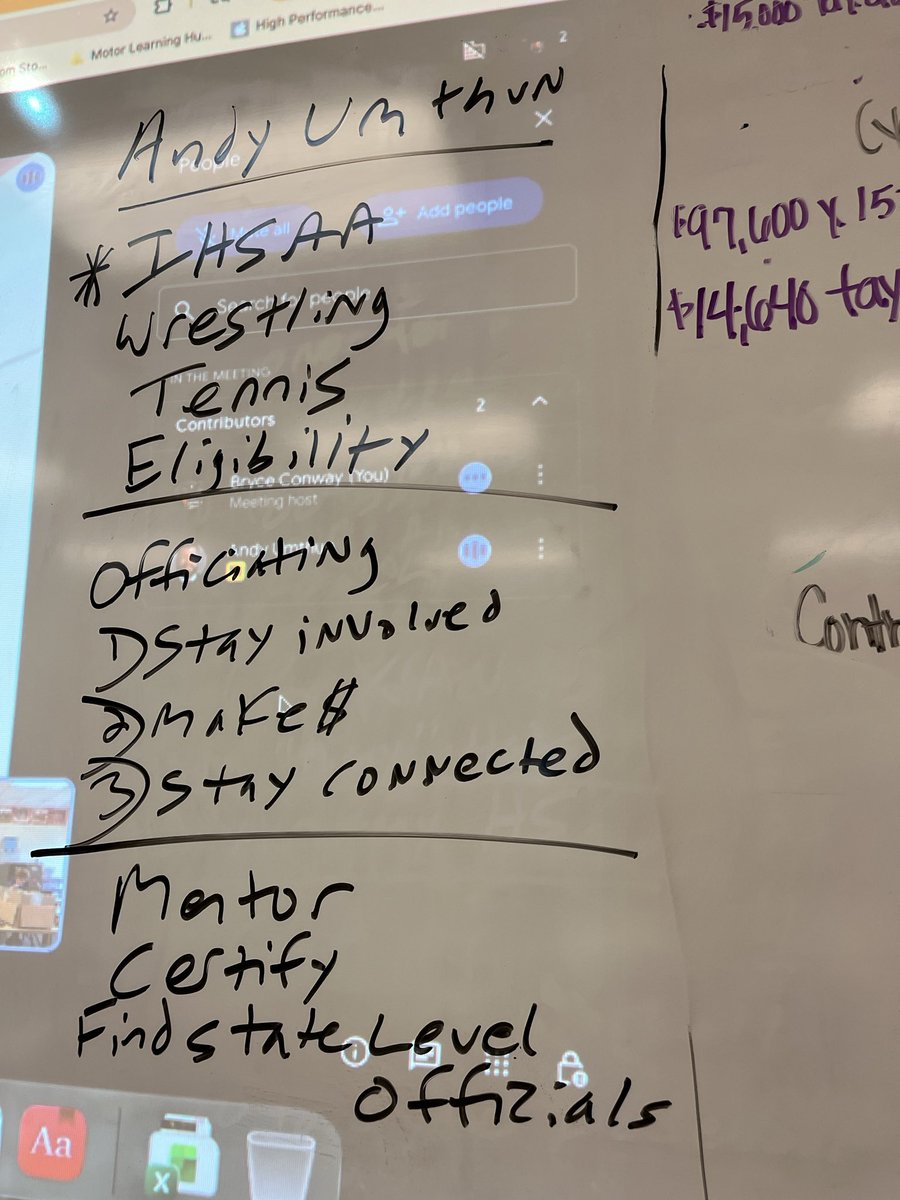 Motor Learning Hu...
High Performance...
om Sto...
2
$15,000
Andy Umthun
People
Add people
*IHSAA
Search for people
Wrestling
IN THE MEETING
Tennis
Contributors
2
Eligibility
Bryce Conway (You)
Meeting host
Officiating
1) Stay involved
2) Make $
3) Stay connected
Mentor
Certify
Find state Level
Offizials
Aa
X
$97,600 x 15
$14,640 tax
Contr